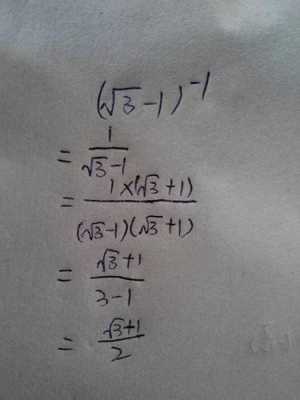 (√3-1)^-1
= 1/(√3-1)
= 1×(√3+1)/(√3-1)(√3+1)
= (√3+1)/(3-1)
= (√3+1)/2